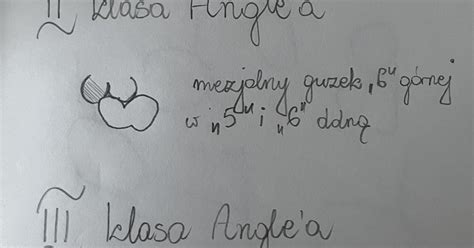 II klasa Angle'a
mezjalny guzek „6" górnej
w „5" i „6" dolną
III klasa Angle'a